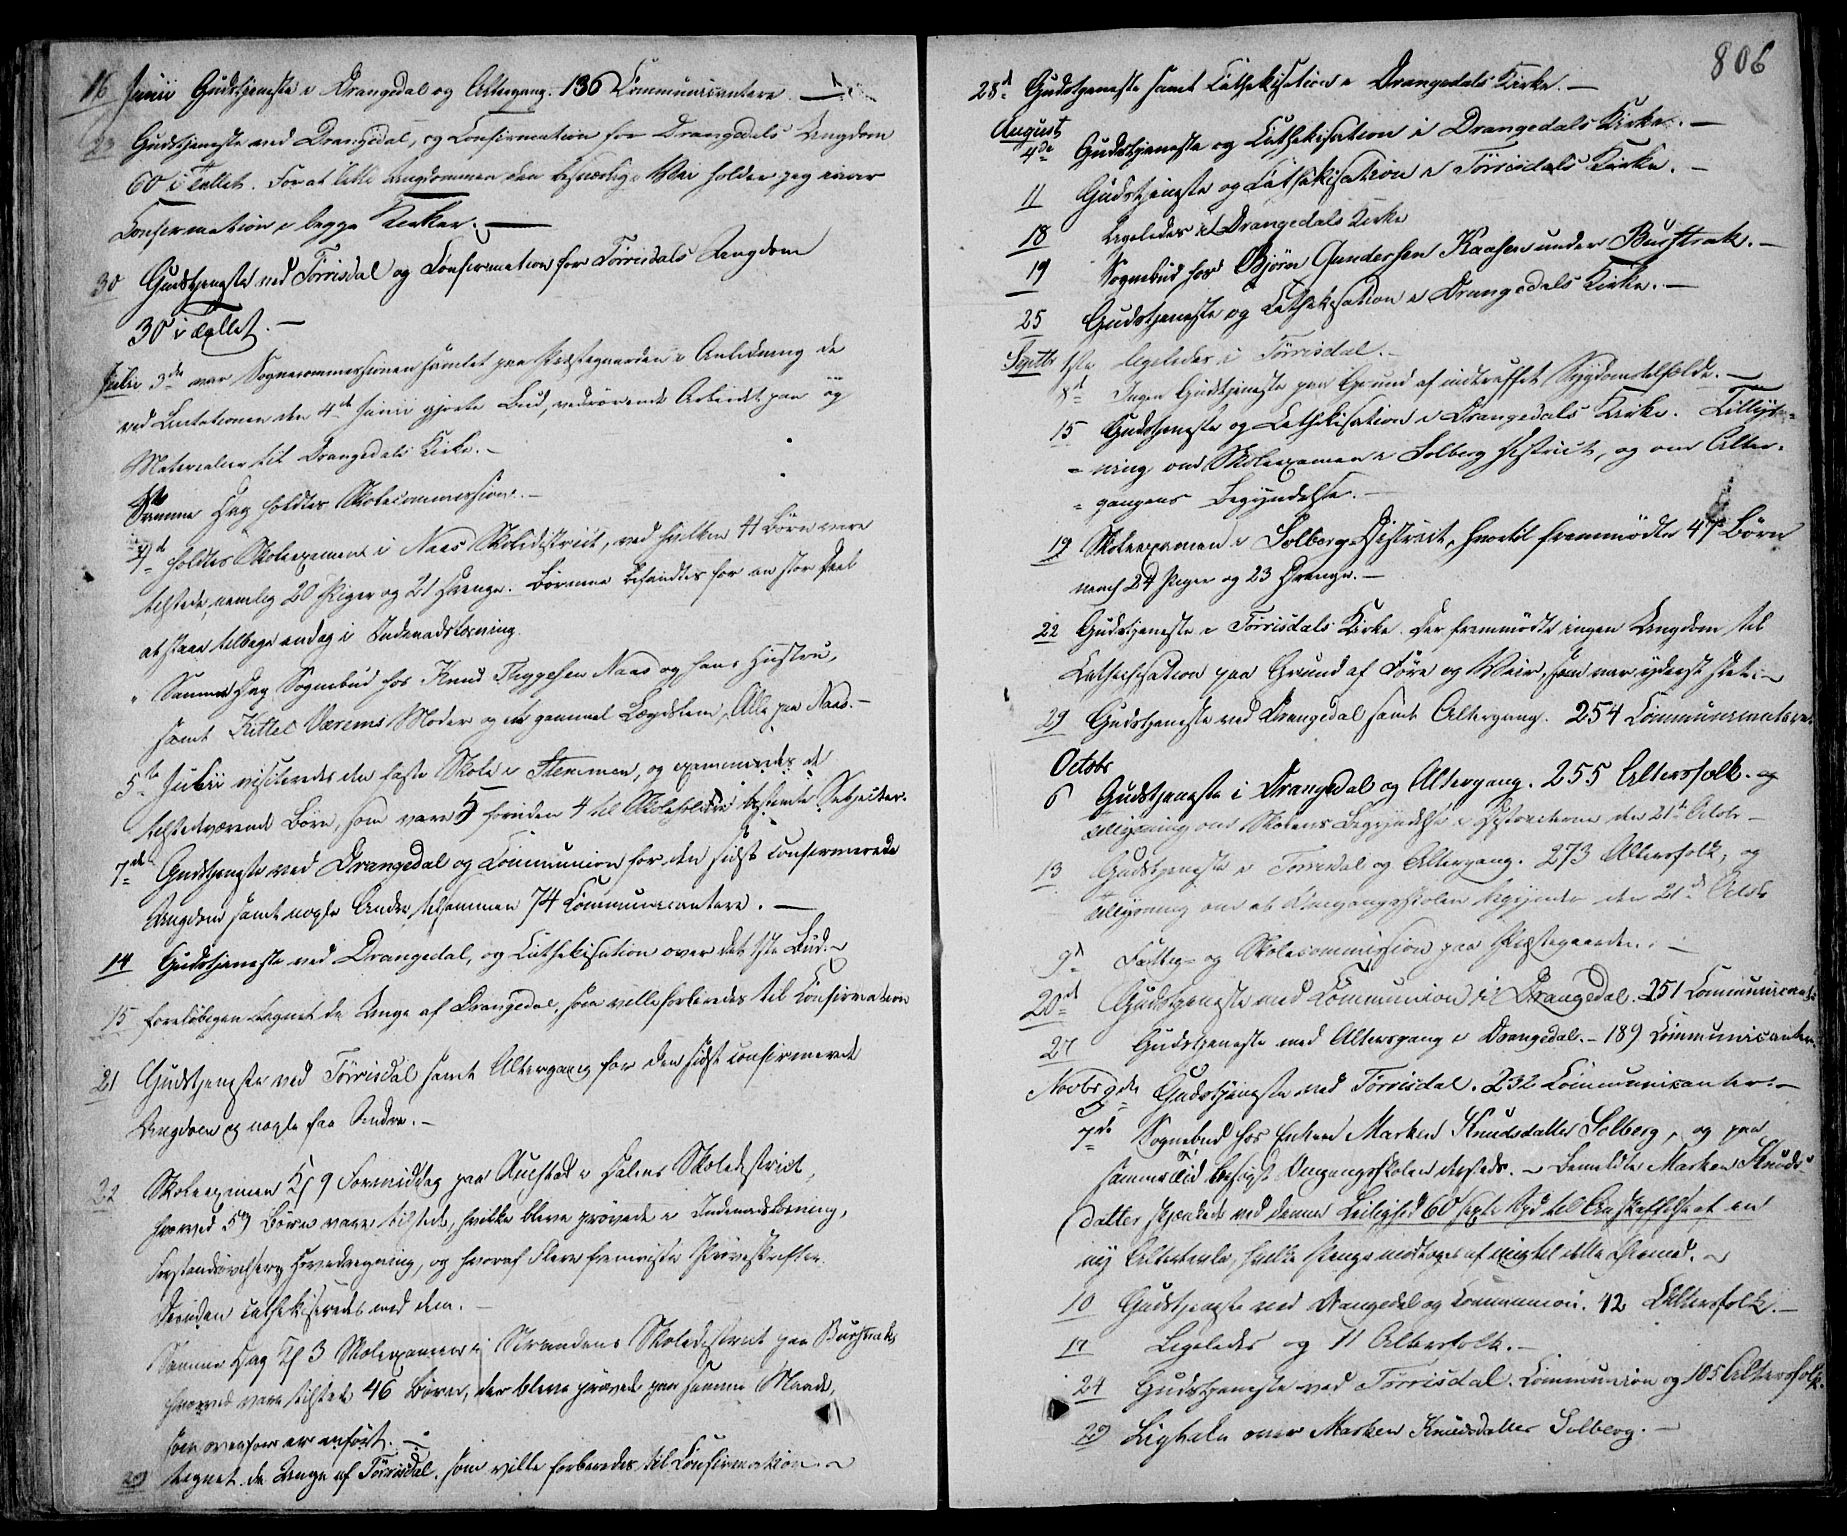 16 Junii Gudstjeneste i Drangedal og Altergang. 136 Communicantere. —
23 Gudstjeneste ved Drangedal, og Confirmation for Drangedals Ungdom
60 i Tallet. For at lette Ungdommen den besværlige Vei holder jeg iaar
Confirmation i begge Kirker. —
30 Gudstjeneste ved Törrisdal og Confirmation for Törrisdals Ungdom
30 i Tallet. —
Julii 3de var Sognecommissionen samlet paa Præstegaarden i Anledning de
ved Licitationen den 4de Junii gjorte Bud, vedrörende Arbeidet paa og
Materialier til Drangedals Kirke. —
Samme Dag holdtes Skolecommission. —
4de holdtes Skoleexamen i Naas Skoledistrict, ved hvilken 41 Börn vare
tilstede, nemlig 20 Piger og 21 Drenge. Börnene befandtes for en stor Deel
at staae tilbage endog i Indenadslæsning.
" Samme Dag Sognebud hos Knud Thygesen Naas og hans Hustru,
samt Kittel Værems Moder og et gammel Lægdslem, Alle paa Naas. —
5te Julii visiteredes den faste Skole i Stemmen, og examineredes de
tilstedeværende Börn, som vare 5 foruden 4 til Skoleholdere bestemte Subjecter.
7de Gudstjeneste ved Drangedal og Communion for den sidst confirmerede
Ungdom samt nogle Andre, tilsammen 74 Communicantere. —
14 Gudstjeneste ved Drangedal, og Cathekisation over det 1ste Bud. —
15 foreløbigen tegnet de Unge af Drangedal, som ville forberedes til Confirmation
21 Gudstjeneste ved Törrisdal samt Altergang for den sidst confirmerede
Ungdom og nogle faa Andre. —
22 Skoleexamen Kl 9 Formiddag paa Austad i Dalens Skoledistrict,
hvorved 59 Börn vare tilstede, hvilke bleve prövede i Indenadslæsning,
Forstandsövelser, Hovedregning, og hvoraf Flere fremviste Pröveskrifter.
Desuden cathekiseredes med dem. —
Samme Dag Kl 3 Skoleexamen i Strandens Skoledistrict paa Burstrak
hvorved vare tilstede 46 Börn, der bleve prövede paa samme Maade,
som ovenfor er anfört. —
29 tegnet de Unge af Törrisdal, som ville forberedes til Confirmation. —
806
28de Gudstjeneste samt Cathekisation i Drangedals Kirke. —
August
4de Gudstjeneste og Cathekisation i Drangedals Kirke. —
11 Gudstjeneste og Cathekisation i Törrisdals Kirke. —
18 Ligeledes i Drangedals Kirke
19 Sognebud hos Björn Gundersen Kaasen under Burstrak. —
25 Gudstjeneste og Cathekisation i Drangedals Kirke. —
Septb 1ste ligeledes i Törrisdal. —
8de Ingen Gudstjeneste paa Grund af indtruffet Sygdomstilfælde. —
15 Gudstjeneste og Cathekisation i Drangedals Kirke. Tillys-
ning om Skoleexamen i Solberg District, og om Alter-
gangens Begyndelse. —
19 Skoleexamen i Solberg District, hvortil fremmödte 47 Börn
nemlig 24 Piger og 23 Drenge. —
22 Gudstjeneste i Törrisdals Kirke. Der fremmödte ingen Ungdom til
Cathekisation paa Grund af Före og Veir, som var yderst slet. —
29 Gudstjeneste ved Drangedal samt Altergang. 254 Communicantere
Octobr
6 Gudstjeneste i Drangedal og Altergang. 255 Altersfolk. og
Tillysning om Skolens Begyndelse i Districterne den 21de Octobr. —
13 Gudstjeneste i Törrisdal og Altergang. 273 Altersfolk, og
Tillysning om at Omgangsskolen begynder den 21de Octbr
9de Fattig- og Skolecommission paa Præstegaarden. —
20de Gudstjeneste med Communion i Drangedal. 251 Communicanter
27 Gudstjeneste med Altergang i Drangedal. — 189 Communicanter.
Novbr 3de Gudstjeneste ved Törrisdal. 232 Communicanter. —
7de Sognebud hos Enken Marken Knudsdatter Solberg, og paa
samme Tid besögt Omgangsskolen dersteds. — Bemeldte Marken Knuds-
datter skjenkede ved denne Leilighed 60 Spte Rpd til Anskaffelse af en
ny Altertavle, hvilke Penge modtoges af mig til dette Öiemed. —
10 Gudstjeneste ved Drangedal og Communion. 42 Altersfolk. —
17 Ligeledes og 11 Altersfolk. —
24 Gudstjeneste ved Törrisdal. Communion og 105 Altersfolk.
29 Ligtale over Marken Knudsdatter Solberg. —